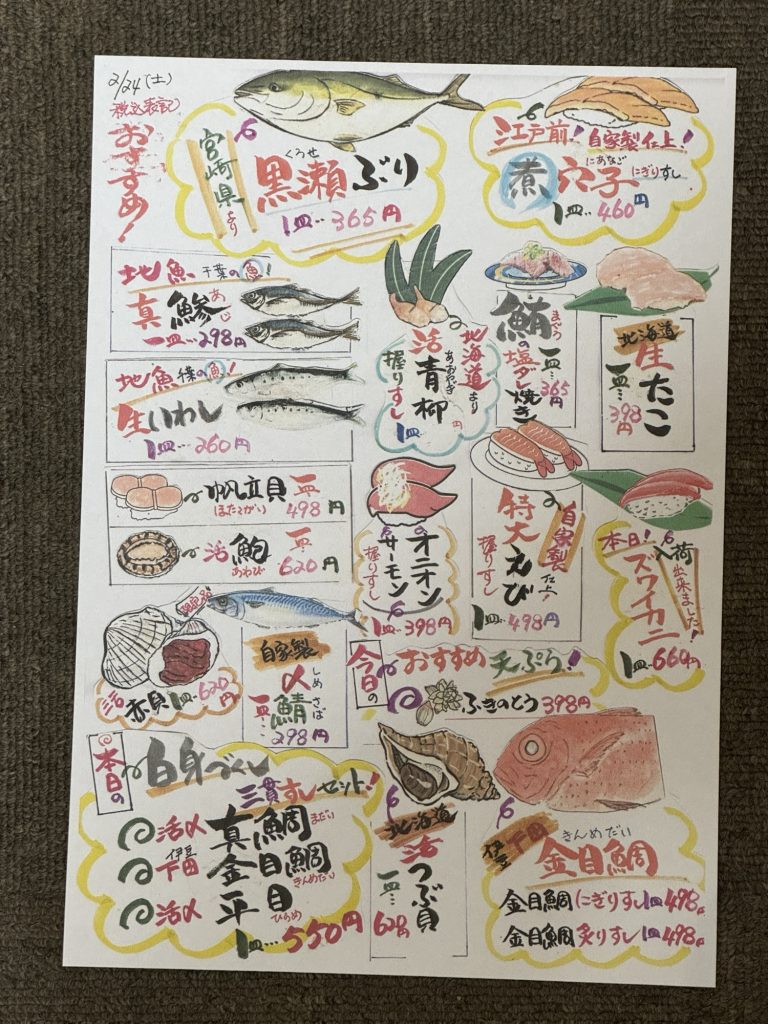 2/24(土)
税込表記
おすすめ!
宮崎県より
くろせ
黒瀬ぶり
1皿…365円
江戸前!自家製仕上!
にあなご
煮穴子にぎりすし
1皿…460円
地魚 千葉の魚!
真鯵
あじ
一皿…298円
地魚 千葉の魚!
生いわし
1皿…260円
北海道より
活青柳
あおやぎ
握りすし
1皿 円
鮪の塩ダレ焼き
まぐろ
一皿…365円
北海道
生たこ
一皿…398円
帆立貝
ほたてがい
一皿498円
活鮑
あわび
一皿620円
オニオン
サーモン
握りすし
1皿…398円
自家製仕上
特大えび
握りすし
1皿…498円
本日!入荷出来ました!
ズワイカニ
1皿…660円
活赤貝1皿…620円
自家製
〆鯖
しめさば
一皿…298円
今日のおすすめ天ぷら!
ふきのとう398円
本日の白身づくし
三貫すしセット!
活〆真鯛
まだい
伊豆下田金目鯛
きんめだい
活〆平目
ひらめ
1皿…550円
北海道
活つぶ貝
一皿…620円
伊豆下田
きんめだい
金目鯛
金目鯛にぎりすし1皿498円
金目鯛炙りすし1皿498円